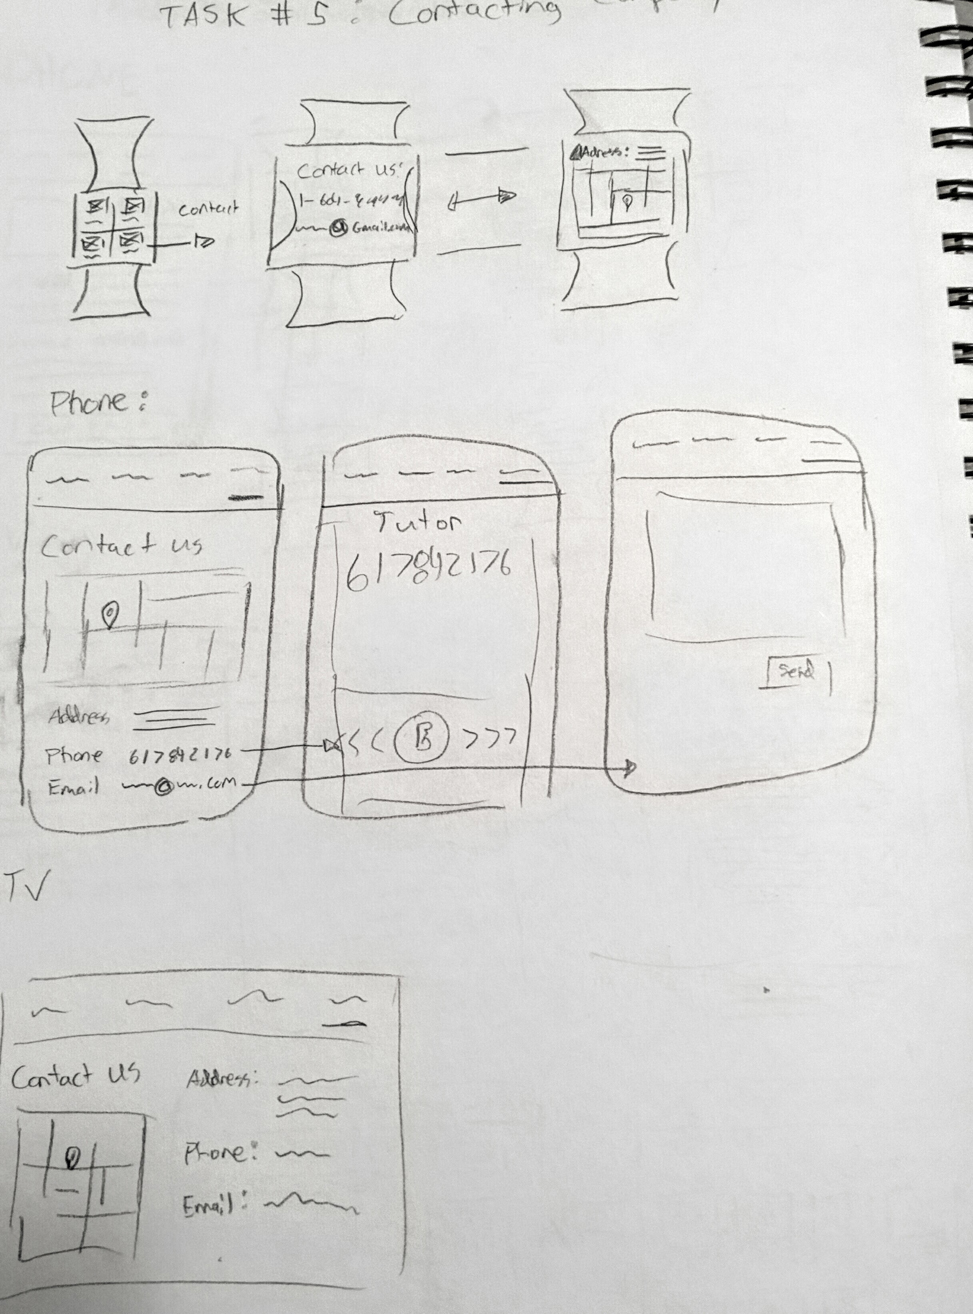 TASK # 5 : Contacting
contact
Contact us:
Gmail.com
Adress:
Phone:
Contact us
Address
Phone 617842176
Email @ .com
Tutor
617842176
Send
TV
Contact us
Address:
Phone:
Email: